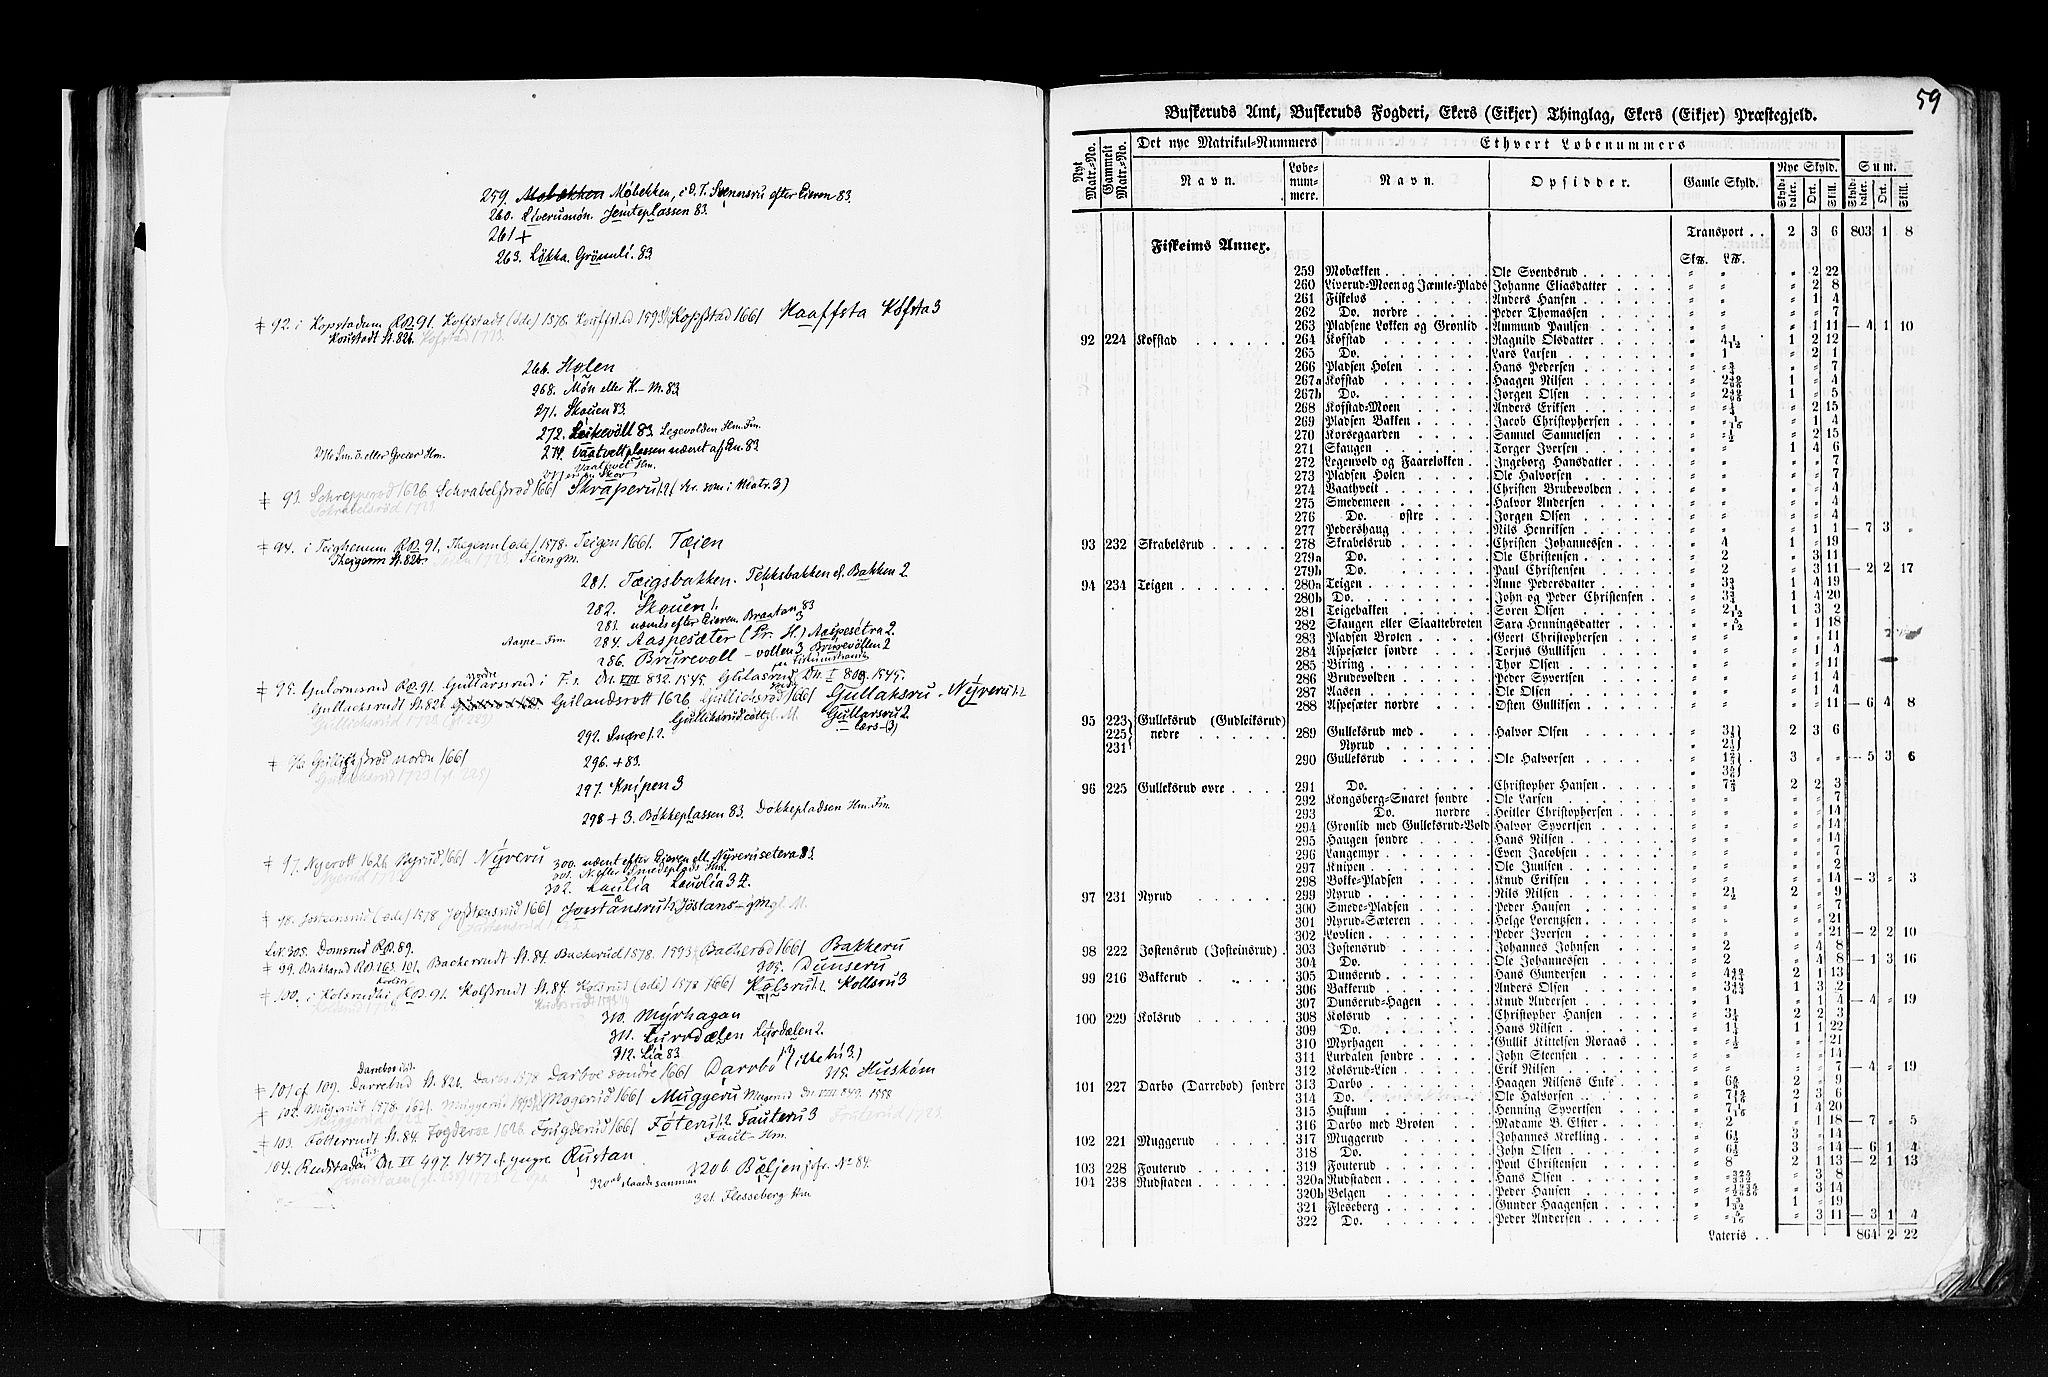 259. Mobækken Møbekken, i D. T. Svennsru efter Eieren 83.
260. Liverumón. Jemteplassen 83.
261 +
263. Løkka. Grönnli. 83.
≠ 92. i Kopstadum RB 91. Koffstadt (øde) 1578. Kopßtad 1661 Kaaffsta Kófsta 3
Koustadt St. 82b. Kofstad 1723.
266. Holen
268. Món eller K-M. 83.
271. Skouen 83.
272. Leikevóll 83. Legevolden Hm. Fm.
276 Sm. ö. eller Greier Hm.
274. Vaatveltplassen nævnt af En. 83
Vaatvet Hm.
≠ 93. Schrepperod 1626. Schrabelßrød 1661 Skråperu 1.2 (skr. som i Matr. 3)
Schrabelsrud 1723.
≠ 94. i Teighenum RB 91. Thegenn (øde) 1578. Teigen 1661. Tæien
281. Tæigsbakken. Tekksbakken el. Bakken 2
282. Skouen 1.
283. nævnt efter Eieren. Braatan 83
Aaspe- Fm.
284. Aaspesæter (Pr. H.) Aaspesétra 2.
286. Brurevoll - vollen 3 Brurevóllen 2
≠ 95. Gulormsrud RB 91. Gullarsrud i F. s. Dn. VIII 832. 1545. Gulasrud Dn. I 809. 1545.
Gullachsrudt St. 82b. Gulandsrott 1626 Gullichsrød 1661 Gullaksru . Nyreru 1.2
Gullichsrud 1723 (gl. 223)
Gullarsru 2.
- lærs- (3)
292. Snare 1.2.
≠ 96 Gullichßrød nordre 1661
Gullichsrud 1723 (gl. 225)
296. + 83.
297. Knipen 3
298 + 3. Bökkeplassen 83. Dokkepladsen Hm. Fm.
≠ 97. Nyerott 1626 Nyrud 1661 Nyreru
Nyerud 1723
300. nævnt efter Eieren ell. Nyreruseteraa 83.
301. N. efter Smedeplads Hm.
302. Laulia Lovlia 3 4.
98. Joxtensrud (øde) 1578 Joßtensrud 1661 Jorstansru 1.2 Jóstans- gm gl. M.
Lit. 305. Domsrud RB. 89.
≠ 99. Bakkarud RB 263. 101. Backerrudt St. 84 Backerud 1578. 1593 Backerød 1661 Bakkeru
305. Dunseru
≠ 100. i Kolsrudhi RB 91. Kolßrudt St. 84. Kolsrud (øde) 1578 1661 Kólsru 1.2 Kollsru 3
Kolsrud 1723.
310. Myrhagan
311. Lurrdælen Lyrdælen 2.
312. Lia 83.
≠ 101 cf 109. Darrebud St. 82b. Darbo 1578 Darboe søndre 1661 Darrbo 1.2 (ikke bú 3.)
315. Huskóm
102. Mugerud 1578. 1621. Muggerud 1593 Mogerud 1661 Muggeru Mugerud Dn VIII 849. 1558
Muggerud 1723
≠ 103. Fotterrudt St. 84. Fogderoe 1626 Fougderud 1661 Fóteru 1.2 Fauteru 3 Fouterud 1723
Faut- Hm.
104. Rudstadom Dn. VI 497. 1437 el. yngre. Rustan
320b Bæljen jfr. No 84.
320ab slaaede sammen
321. Flesseberg Hm
59
Buskeruds Amt, Buskeruds Fogderi, Ekers (Eikjer) Thinglag, Ekers (Eikjer) Præstegjeld.
Nyt Matr.-No. Gammelt Matr.-No. Det nye Matrikul-Nummers Ethvert Løbenummers
Navn. Løbe-num-mere. Navn. Opsidder. Gamle Skyld. Nye Skyld. Sum.
Skyld-daler. Ort. Skill. Skyld-daler. Ort. Skill.
Transport . . 2 3 6 803 1 8
Fiskeims Annex. Sk℔. L℔.
259 Mobækken Ole Svendsrud " " " 2 22
260 Liverud-Moen og Jæmte-Plads Johanne Eliasdatter " " " 2 8
261 Fiskeløs Anders Hansen " " " 1 4
262 Do. nordre Peder Thomassen " " " " 7
263 Pladsene Løkken og Grønlid Ammund Paulsen " " " 1 11 — 4 1 10
92 224 Kofstad 264 Kofstad Ragnild Olsdatter " 4 1/12 1 2 12
265 Do. Lars Larsen " 1 " 2 1
266 Pladsen Holen Hans Pedersen " 3/4 " " 7
267a Kofstad Haagen Nilsen " 1 " 4
267b Do. Jørgen Olsen " 1 " 5
268 Kofstad-Moen Anders Eriksen " 1/4 " 2 15
269 Pladsen Bakken Jacob Christophersen " 1/16 " 1 4
270 Korsegaarden Samuel Samuelsen " 1/4 " 2 15
271 Skaugen Torger Iversen " " 1 4 6
272 Legenvold og Faareløkken Ingeborg Hansdatter " " " " 7
273 Pladsen Holen Ole Halvorsen " " " " 7
274 Vaathveit Christen Brudevolden " " " " 4
275 Smedemoen Halvor Andersen " " " " 4
276 Do. østre Jørgen Olsen " " " " 4
277 Pedershaug Nils Henriksen " " " 1 1 — 7 3 "
93 232 Skrabelsrud 278 Skrabelsrud Christen Johannessen " 4 1 " 19
279a Do. Ole Christensen " 2 " 3 11
279b Do. Paul Christensen " 2 " 3 11 — 2 2 17
94 234 Teigen 280a Teigen Anne Pedersdatter " 3 3/4 1 4 19
280b Do. John og Peder Christensen " 3 3/4 1 4 20
281 Teigebakken Søren Olsen " 2 1/12 1 3 2
282 Skaugen eller Slaattebroten Sara Henningsdatter " 5/12 " 1 18
283 Pladsen Broten Geert Christophersen " " " " 11
284 Aspesæter søndre Torjus Gulliksen " " " 1 4
285 Biring Thor Olsen " " " " 11
286 Brudevolden Peder Syvertsen " " " 1 4
287 Aasen Ole Olsen " " " 1 4
288 Aspesæter nordre Osten Gulliksen " " " " 11 — 6 4 8
95 223 225 231 Gulleksrud (Gudleiksrud) nedre 289 Gulleksrud med Nyrud Halvor Olsen " 3 1/3 " 2 1/2 2 3 6
290 Gulleksrud Ole Halvorsen " 1 2/3 " 3 5/6 3 " " — 5 3 6
96 225 Gulleksrud øvre 291 Do. Christopher Hansen " 7 2/3 2 2 3
292 Kongsberg-Snaret søndre Ole Larsen " " " " 7
293 Do. nordre Heitler Christophersen " " " " 14
294 Grønlid med Gulleksrud-Vold Halvor Syvertsen " " " " 14
295 Haugen søndre Hans Nilsen " " " " 14
296 Langemyr Even Jacobsen " " " " 7
297 Knipen Ole Juulsen " " " " 2
298 Bokke-Pladsen Knud Eriksen " " " " 14 — 3 " 3
97 231 Nyrud 299 Nyrud Nils Nilsen " 2 1/2 2 " 9
300 Smede-Pladsen Peder Hansen " " " " 7
301 Nyrud-Sæteren Helge Lorentzsen " " " " 21
302 Løvlien Peder Iversen " " " " 21 — 2 2 10
98 222 Jostensrud (Josteinsrud) 303 Jostensrud Johannes Johnsen " 2 " 4 8
304 Do. Ole Johannessen " 2 " 4 8 — 1 3 16
99 216 Bakkerud 305 Dunserud Hans Gundersen " 2 1 13
306 Bakkerud Anders Olsen " 1 3 2
307 Dunserud-Hagen Knud Andersen " 1 " 1 4 — 4 " 19
100 229 Kolsrud 308 Kolsrud Christopher Hansen " 3 1/4 2 2 3
309 Do. Hans Nilsen " 1 1/4 1 1 22
310 Myrhagen Gullik Kittelsen Noraas " 1/2 " " 21
311 Lurdalen søndre John Steensen " " " " 14
312 Kolsrud-Lien Erik Nilsen " " " " 7 — 4 " 19
101 227 Darbo (Darrebod) søndre 313 Darbo Haagen Nilsens Enke 2 " 9
314 Do. Ole Halvorsen 2 3 6
315 Hustum Henning Syvertsen 1 4 20
316 Darbo med Broten Madame B. Elster " 2 " 1 18 — 7 " 5
102 221 Muggerud 317 Muggerud Johannes Krekling " 6 1/4 3 " 14
318 Do. John Olsen " 6 1/4 3 " 14 — 6 1 4
103 228 Fouterud 319 Fouterud Poul Christensen " 8 2 1 13 — 2 1 13
104 238 Rudstaden 320a Rudstaden Hans Olsen " " 3 8
320b Belgen Peder Hansen " " 3 14
321 Fleseberg Gunder Haagensen " 1 3/32 1 " 19
322 Do. Peder Andersen " 5/16 " 3 11 — 3 1 4
Lateris . . 864 2 22